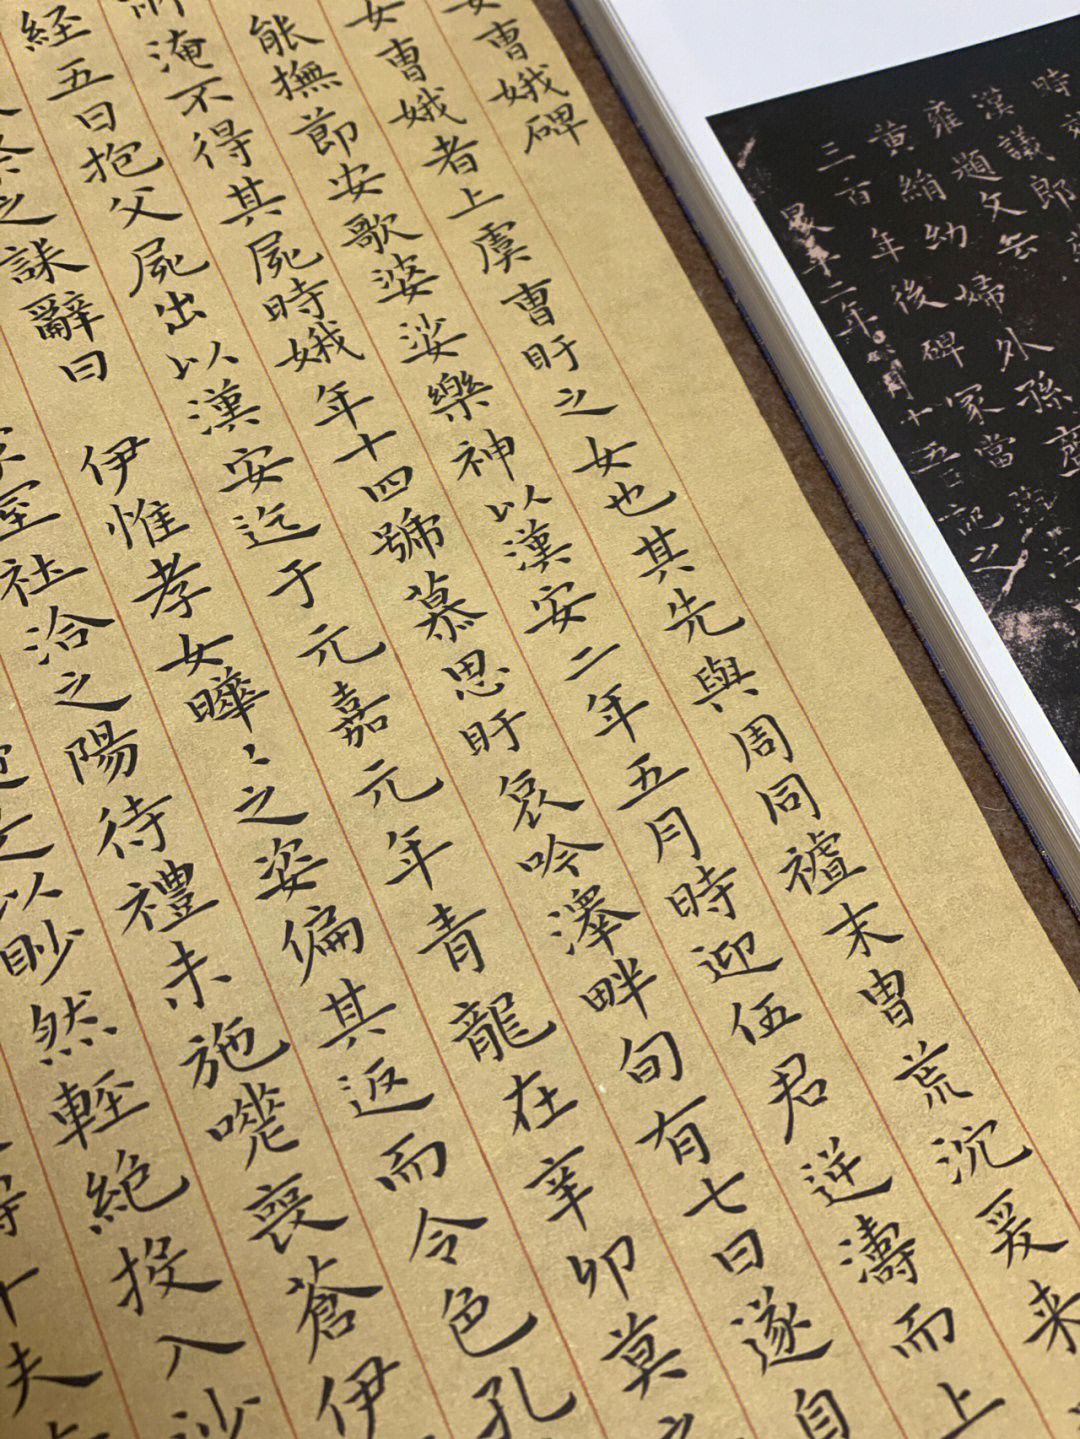 女曹娥碑
女曹娥者上虞曹盱之女也其先與周同禩末胄荒沉爰来
能撫節安歌婆娑樂神以漢安二年五月時迎伍君逆濤而上
淹不得其屍時娥年十四號慕思盱哀吟澤畔旬有七日遂自
経五日抱父屍出以漢安迄于元嘉元年青龍在辛卯莫之
之誄辭曰
伊惟孝女曄〻之姿偏其返而令色孔
室社洽之陽待禮未施嗟喪蒼伊
之以眇然輕絕投入沙
十夫
時
漢議郎
雍題文云
黃絹幼婦外孫
三百年後碑冢當
二年 月十五日記之